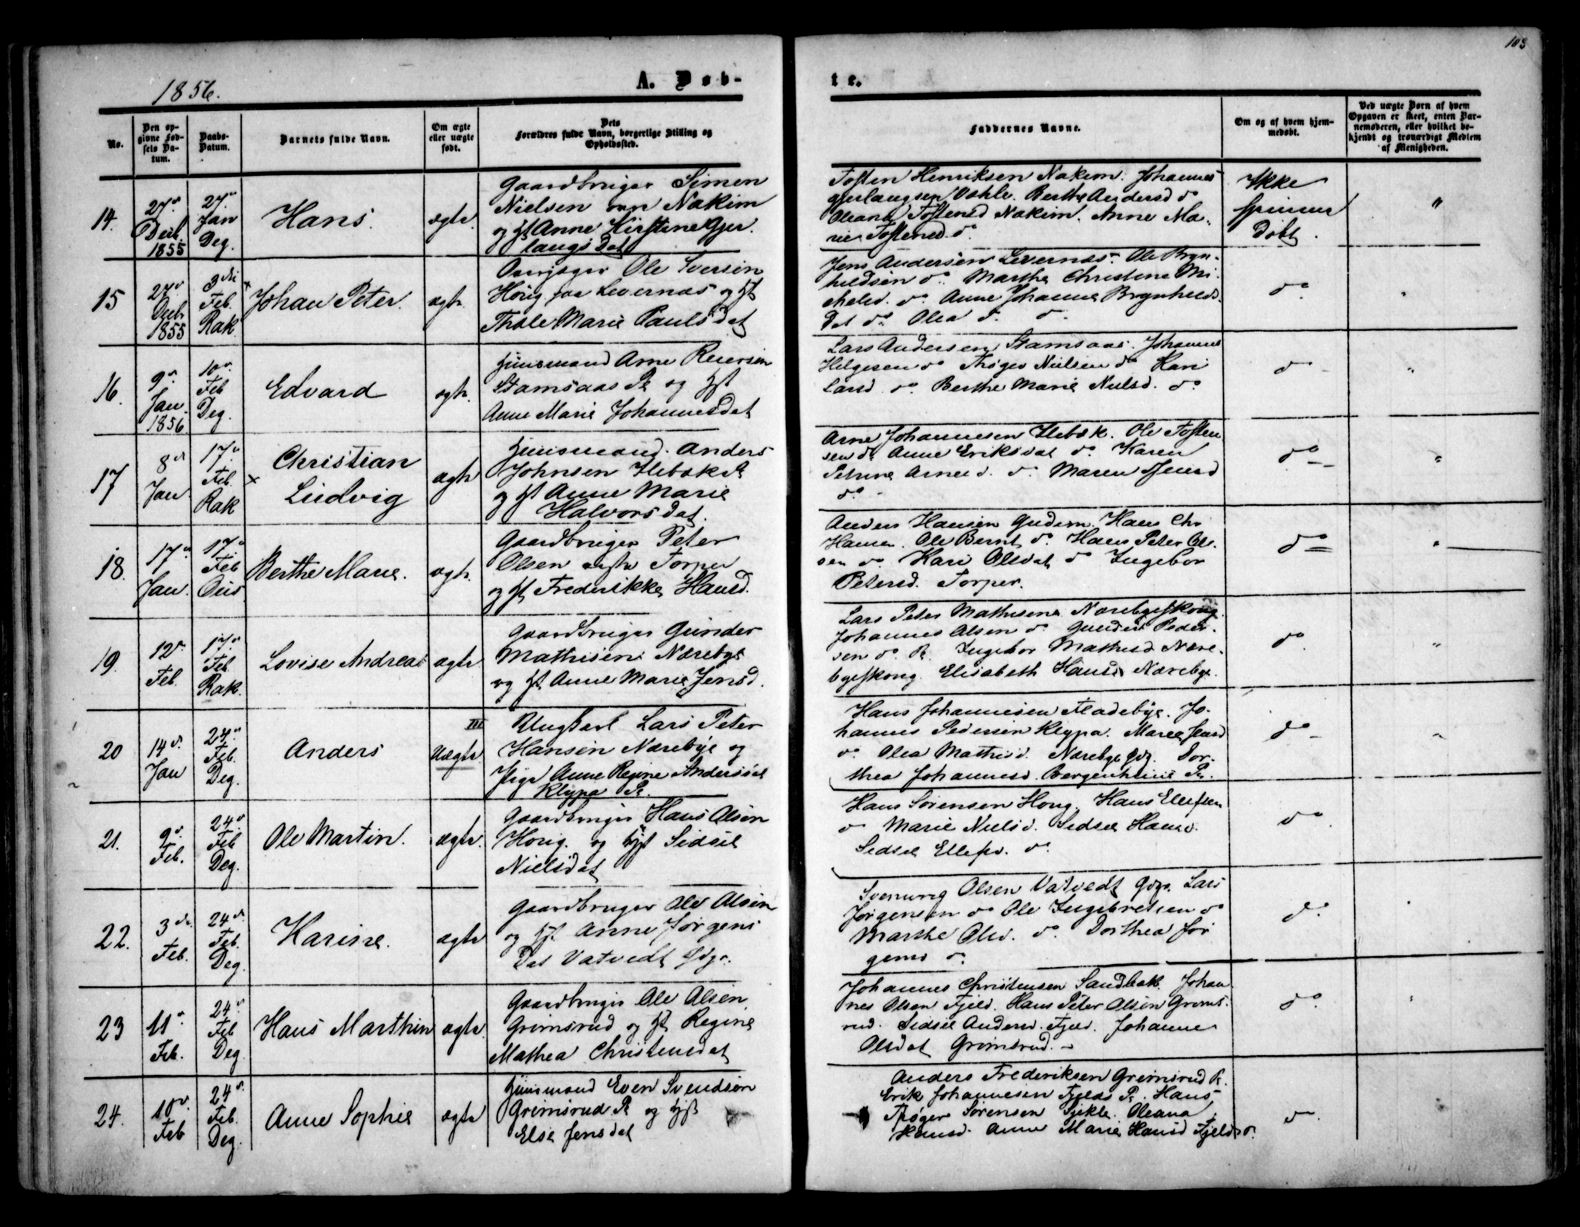 103
1856.
A. Døb-
te.
No.
Den op-
givne Fød-
sels Da-
tum.
Daabs-
Datum.
Barnets fulde Navn.
Om ægte
eller uægte
født.
Dets
Forældres fulde Navn, borgerlige Stilling og
Opholdssted.
Faddernes Navne.
Om og af hvem hjem-
medøbt.
Ved uægte Børn af hvem
Opgaven er skeet, enten Bar-
nemoderen, eller hvilket be-
kjendt og troværdigt Medlem
af Menigheden.
14.
27de
Decbr
1855
27.
Jan
Deg.
Hans.
ægte.
Gaardbruger Simen
Nielsen Nakim
og Hst Anne Kirstine Gjer
laugsdat
Tosten Henriksen Nakim. Johannes
Gjerlaugsen Vahle. Berthe Andersd do
Oleana Tostensd Nakim. Anne Ma-
rie Tostensd. do
Ikke
hjemme
døbt.
"
15
27de
Decbr
1855
3die
Feb
Rak
Johan Peter.
ægte.
Ole Syversen
Høug paa Levernæs og Hst
Thale Marie Paulsdat
Jens Andersen Levernæs. Ole Bryn-
hildsen do. Marthe Christine Mi-
chelsd. do Anne Johanne Brynhilds-
dat do. Olea do
do
"
16.
9de
Jan.
1856
10de
Feb
Deg.
Edvard
ægte.
Huusmand Arne Reiersen
Stamsaas Pl og Hst
Anne Marie Johannesdat
Lars Andersen Stamsaas. Johannes
Helgesen do Thøger Nielsen do Kari
Larsd. do Berthe Marie Nielsd. do
do
17
8de
Jan
17de
Feb.
Rak
Christian
Ludvig
ægte
Huusmand. Anders
Johnsen Hebæk Pl
og Hst Anne Marie
Halvorsdat.
Arne Johannesen Hebæk. Ole Tosten
sen do Anne Eriksdat do Karen
Petrine Arnesd. do Maren Jensd
do
do
"
18.
17de
Jan
17de
Feb
Berthe Marie.
ægte.
Gaardbruger Peter
Olsen Torper
og Hst Frederikke Hansd.
Anders Hansen Gudem. Hans Chr
Hansen. Ole Bernt do. Hans Peter Ol-
sen do Kari Olsdat do Ingebor
Petersd. Torper.
do
"
19.
12te
Feb.
17de
Feb
Rak.
Lovise Andrea
ægte
Gaardbruger Gunder
Mathisen Nærebye
og Hst Anne Marie Jensd.
Lars Peter Mathisen Nærebyeskoug.
Johannes Olsen do Gunder Peder-
sen do Pl. Ingebor Mathisd Nære-
byeskoug. Elisabeth Hansd Nærebye.
do.
"
20
14de
Jan
24de
Feb.
Deg.
Anders
III
Uægte
Ungkarl Lars Peter
Hansen Nærebye og
Pige Anne Regine Andersdat
Klypa Pl.
Hans Johannesen Aadebye. Jo-
hannes Pedersen Klypa. Maren Jensd
do Olea Mathisd. Nærebye Gdg. Dor-
thea Johannesd. Bergenhuus Pl.
do
"
21.
9de
Feb.
24de
Feb
Deg.
Ole Martin.
ægte.
Gaardbruger Hans Olsen
Houg. og Hst Sidsel
Nielsdat
Hans Sørensen Houg. Hans Ellefsen
do Marie Nielsd. Sidsel Hansd.
Sidsel Ellefsd. do
do
22.
3die
Feb.
24de
Feb.
Deg.
Karine.
ægte
Gaardbruger Ole Olsen
og Hst. Anne Jørgens
dat Vatvedt Gdg.
Olsen Vatvedt Gdg. Lars
Jørgensen do Ole Ingebretsen do
Marthe Olsd. do. Dorthea Jør
gensd do.
do.
23
11te
Feb.
24de
Feb
Deg
Hans Marthin
ægte.
Gaardbruger Ole Olsen
Grimsrud og Hst Regine
Mathea Christensdat
Johannes Christensen Sandbæk. Johan
nes Olsen Fjeld. Hans Peter Olsen Grims-
rud. Sidsel Andersd. Fjeld. Johanne
Olsdat Grimsrud.
do
24.
10de
Feb
24de
Feb.
Deg.
Anne Sophie
ægte
Huusmand Even Svendsen
Grimsrud Pl og Hst
Else Jensdat
Anders Frederiksen Grimsrud Pl.
Erik Johannesen Fjeld Pl. Hans
Thøger Sørensen Oleana
Hansd. Anne Marie Hansd Fjeld do.
do